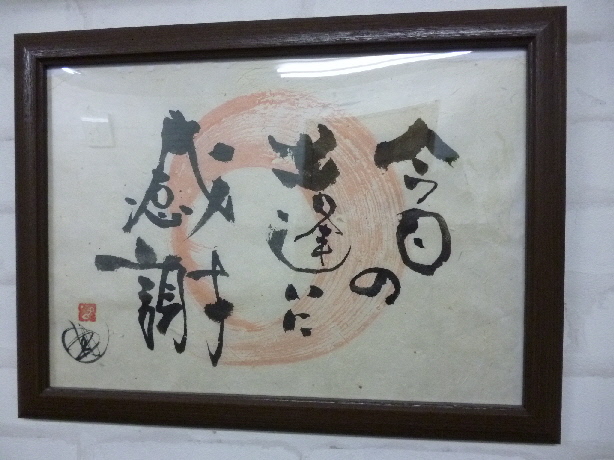 今日の
出逢いに
感謝